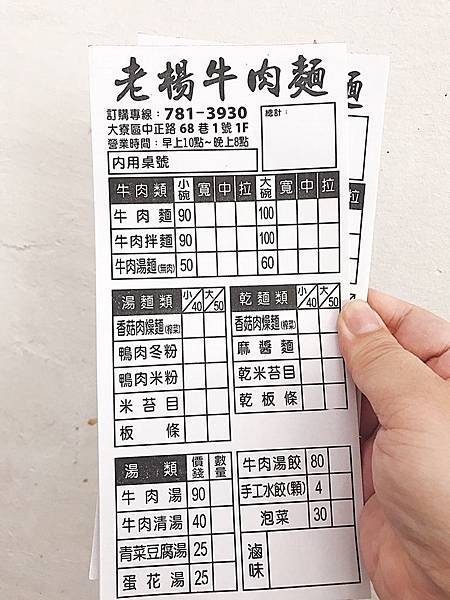 老楊牛肉麵
訂購專線：781-3930
大寮區中正路68巷1號1F
營業時間：早上10點~晚上8點
總計：
內用桌號
牛肉類 小碗 寬 中 拉 大碗 寬 中 拉
牛肉麵 90 100
牛肉拌麵 90 100
牛肉湯麵(無肉) 50 60
湯麵類 小/40 大/50
香菇肉燥麵(榨菜)
鴨肉冬粉
鴨肉米粉
米苔目
板條
乾麵類 小/40 大/50
香菇肉燥麵(榨菜)
麻醬麵
乾米苔目
乾板條
湯類 價錢 數量
牛肉湯 90
牛肉清湯 40
青菜豆腐湯 25
蛋花湯 25
牛肉湯餃 80
手工水餃(顆) 4
泡菜 30
滷味
麵
拉